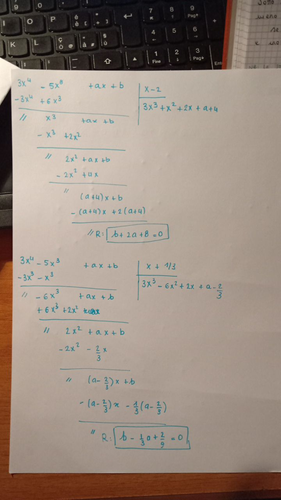 3x⁴ - 5x³ + ax + b | x - 2
-3x⁴ + 6x³ | 3x³ + x² + 2x + a+4
// x³ + ax + b
- x³ + 2x²
// 2x² + ax + b
- 2x² + 4x
// (a+4)x + b
- (a+4)x + 2(a+4)
// R: b + 2a + 8 = 0
3x⁴ - 5x³ + ax + b | x + 1/3
-3x⁴ - x³ | 3x³ - 6x² + 2x + a - 2/3
// - 6x³ + ax + b
+ 6x³ + 2x²
// 2x² + ax + b
- 2x² - 2/3 x
// (a - 2/3)x + b
- (a - 2/3)x - 1/3(a - 2/3)
// R: b - 1/3 a + 2/9 = 0